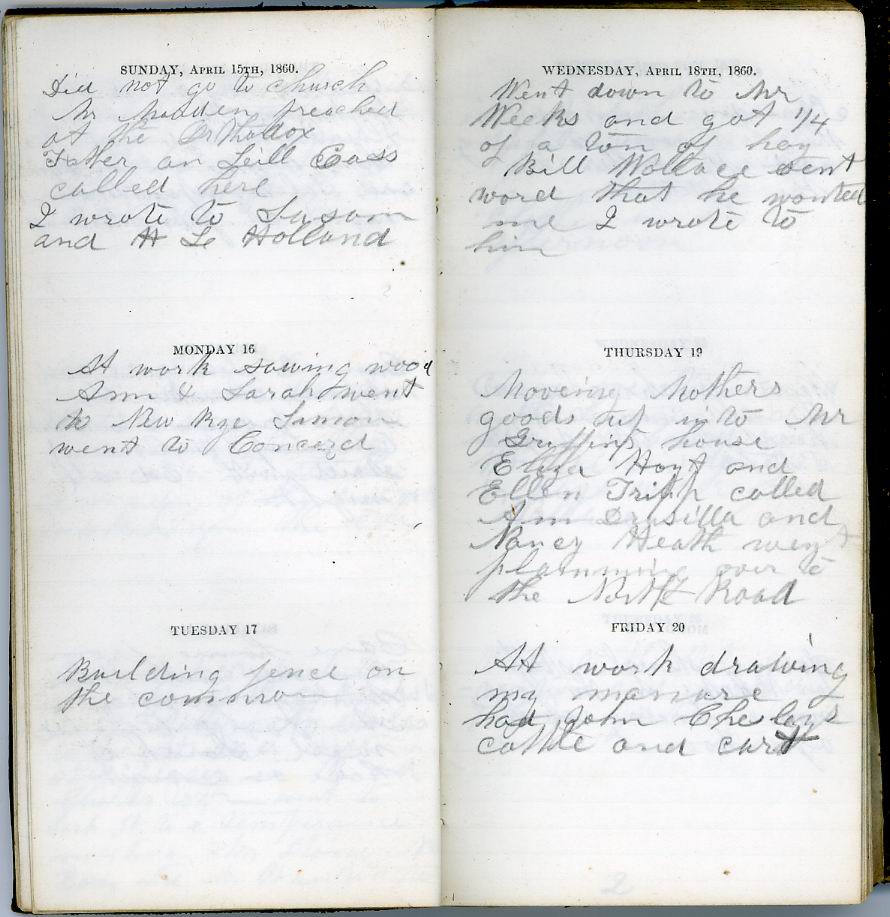 SUNDAY, APRIL 15TH, 1860.
Did not go to church
Mr Madden preached
at the Orthodox
Father an Leill Cass
called here
I wrote to Susan
and H Le Holland
MONDAY 16
At work sawing wood
Ann & Sarah went
to New Rye Simon
went to Concord
TUESDAY 17
Building fence on
the common
WEDNESDAY, APRIL 18TH, 1860.
Went down to Mr
Weeks and got 1/4
of a ton of hay
Bill Wallace sent
word that he wanted
me I wrote to
him
THURSDAY 19
Moveing Mothers
goods up into Mr
Griffins house
Eliza Hoyt and
Ellen Tripp called
Ann Drusilla and
Nancy Heath went
plumming over to
the North Road
FRIDAY 20
At work drawing
my manure
had John Chesleys
cattle and cart
2